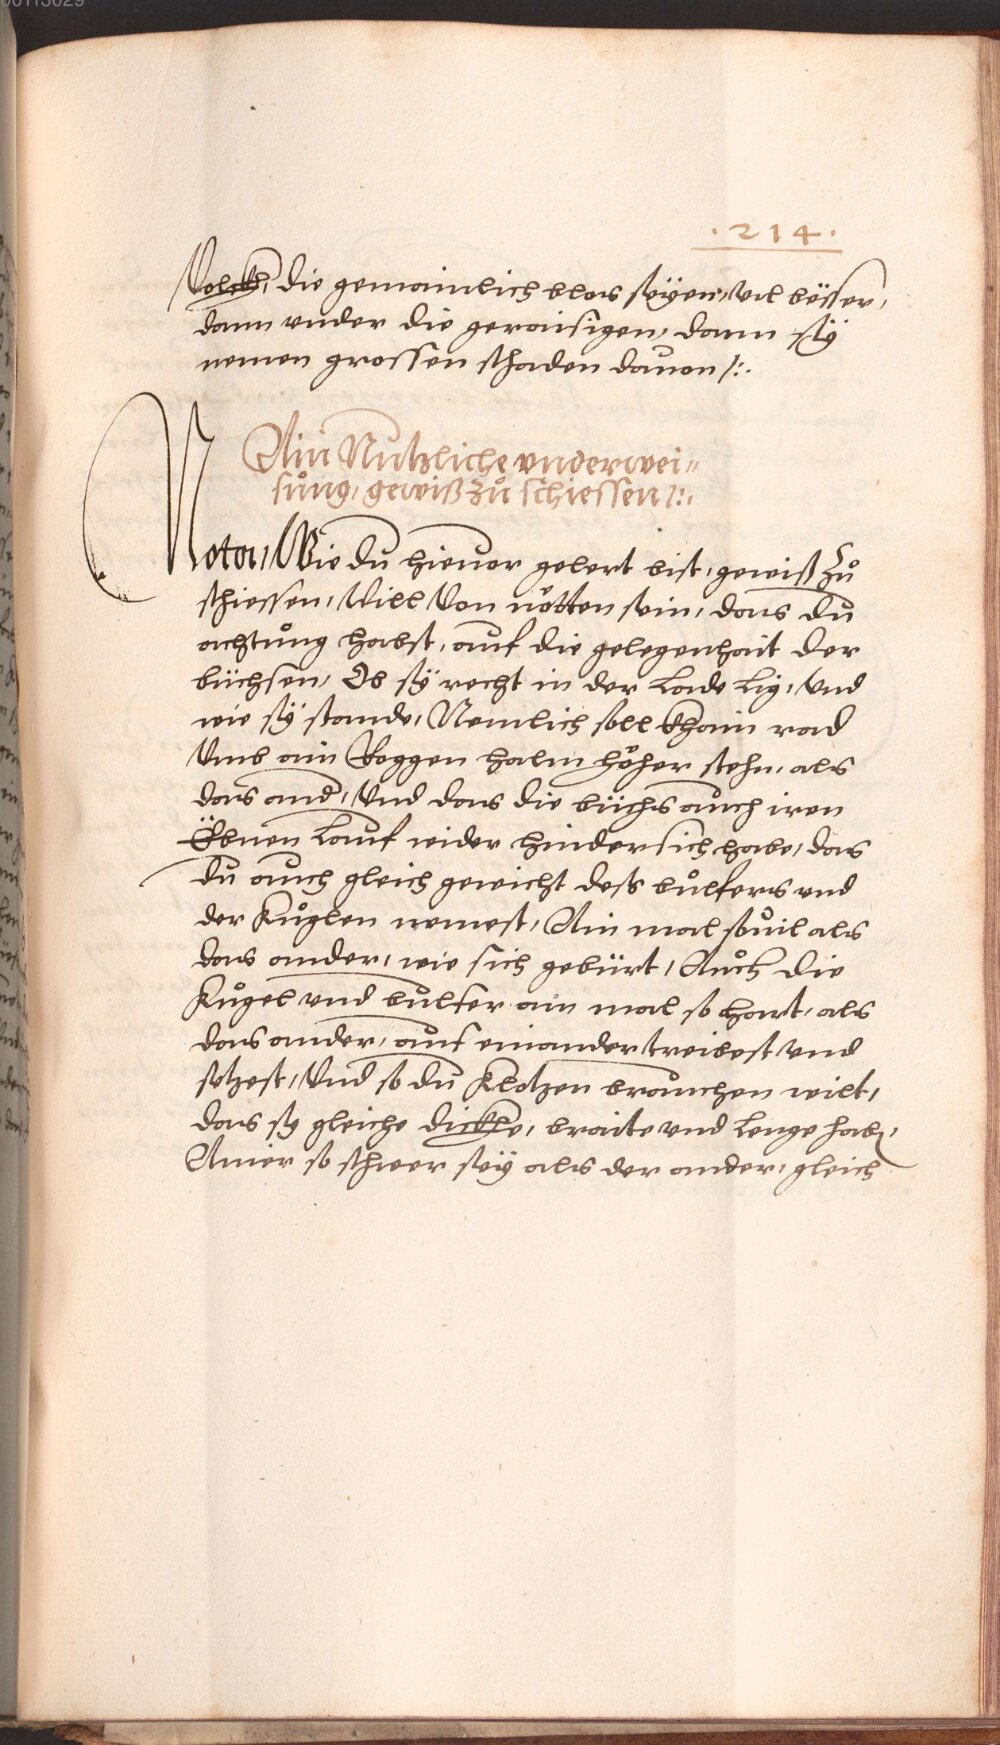 00113029
· 214 ·
Volckh, die gemainlich blos seÿen, vil bësser,
dann vnder die geraisigen, dann sÿ
nemen grossen schaden dauon /:.
Ain Nutzliche vnderwei=
sůng, gewiß zů schiessen /:.
Nota, Wie du hieuor gelert bist, gewiß zů
schiessen, Will von nötten sein, das dů
achtůng habst, auf die gelegenhait der
büchsen, Ob sÿ recht in der Lade lig, vnd
wie sÿ stande, Nemlich soll khain rad
vmb ain Roggen halm höher stehn, als
das and, vnd das die büchs auch iren
Ëbnen Lauf wider hindersich habe, das
du auch gleich gewicht dess bůlfers vnd
der Kůglen nemest, Ain mal souil als
das ander, wie sich gebürt, Aůch die
Kůgel vnd bůlfer ain mal so hart, als
das ander, auf einander treibest vnd
setzest, Vnd so du Klotzen brauchen wilt,
das sy gleiche dickhe, braite vnd lenge hab,
Ainer so schwer seÿ als der ander, gleich